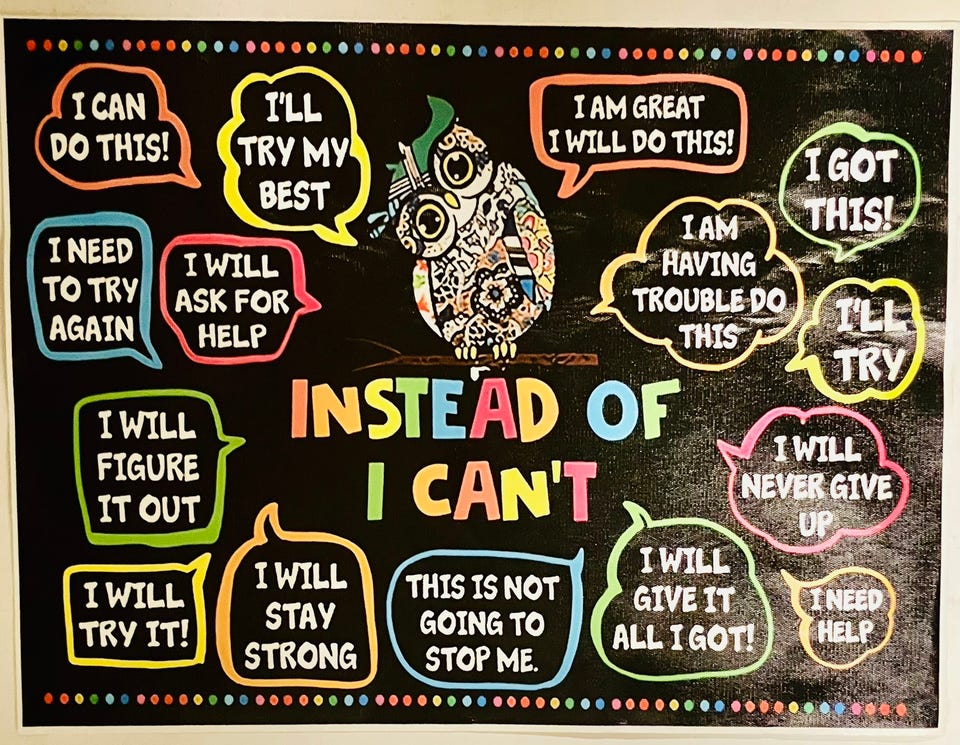 I CAN
DO THIS!
I'LL
TRY MY
BEST
I AM GREAT
I WILL DO THIS!
I GOT
THIS!
I NEED
TO TRY
AGAIN
I WILL
ASK FOR
HELP
I AM
HAVING
TROUBLE DO
THIS
I'LL
TRY
INSTEAD OF
I CAN'T
I WILL
FIGURE
IT OUT
I WILL
NEVER GIVE
UP
I WILL
TRY IT!
I WILL
STAY
STRONG
THIS IS NOT
GOING TO
STOP ME.
I WILL
GIVE IT
ALL I GOT!
I NEED
HELP